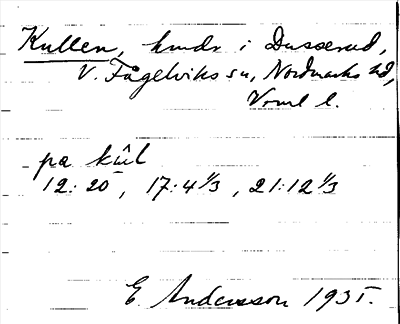 Kullen, hmdr i Dusserud,
V. Fågelviks sn, Nordmarks hd,
Vrml l.
pa kûl
12:20, 17:4 1/3, 21:12 1/3
E Andersson 1935.